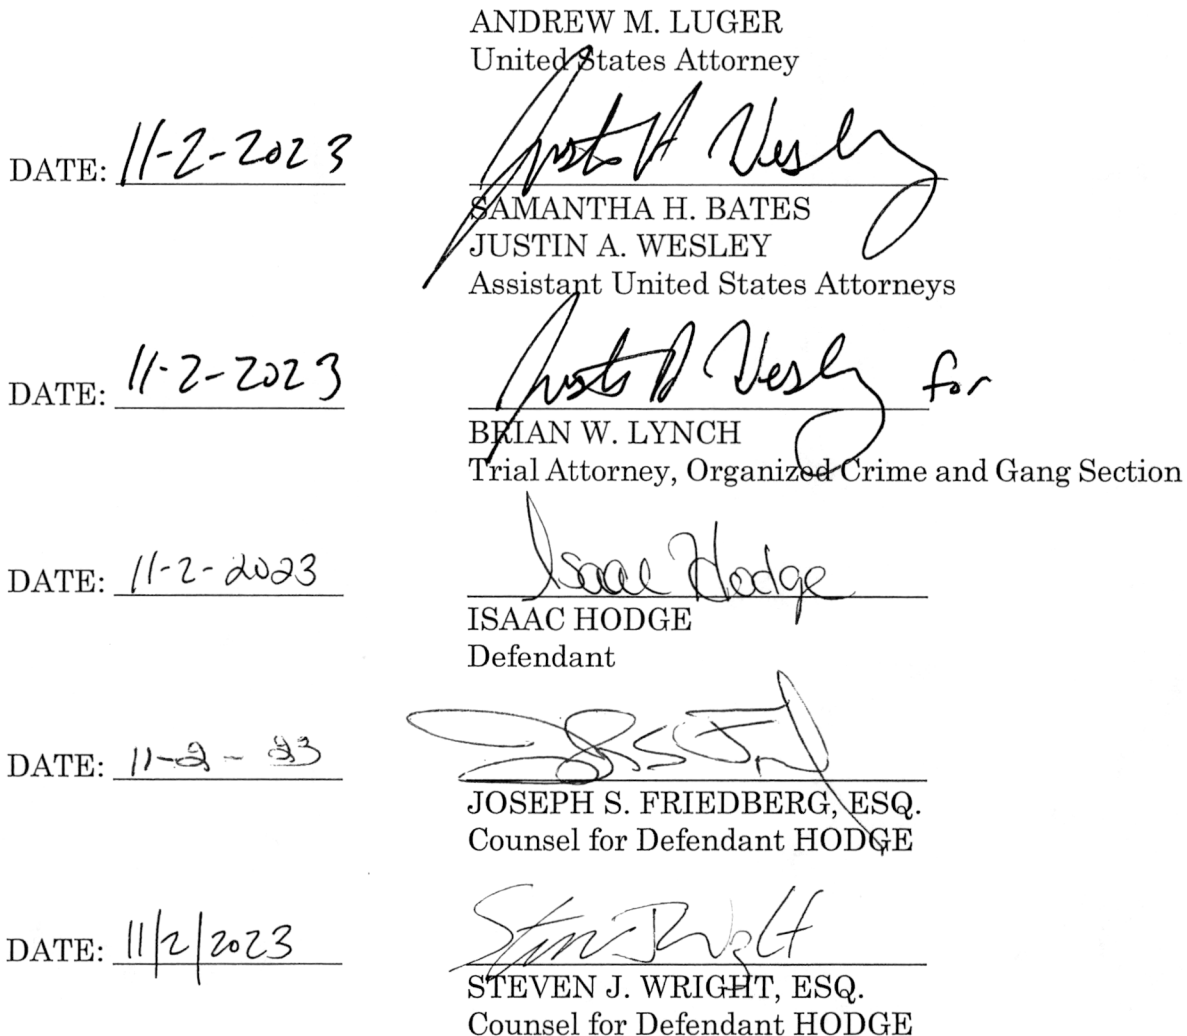 ANDREW M. LUGER
United States Attorney
DATE: 11-2-2023 Justin A Wesley
SAMANTHA H. BATES
JUSTIN A. WESLEY
Assistant United States Attorneys
DATE: 11-2-2023 Justin A Wesley for
BRIAN W. LYNCH
Trial Attorney, Organized Crime and Gang Section
DATE: 11-2-2023 Isaac Hodge
ISAAC HODGE
Defendant
DATE: 11-2-23
JOSEPH S. FRIEDBERG, ESQ.
Counsel for Defendant HODGE
DATE: 11/2/2023
STEVEN J. WRIGHT, ESQ.
Counsel for Defendant HODGE